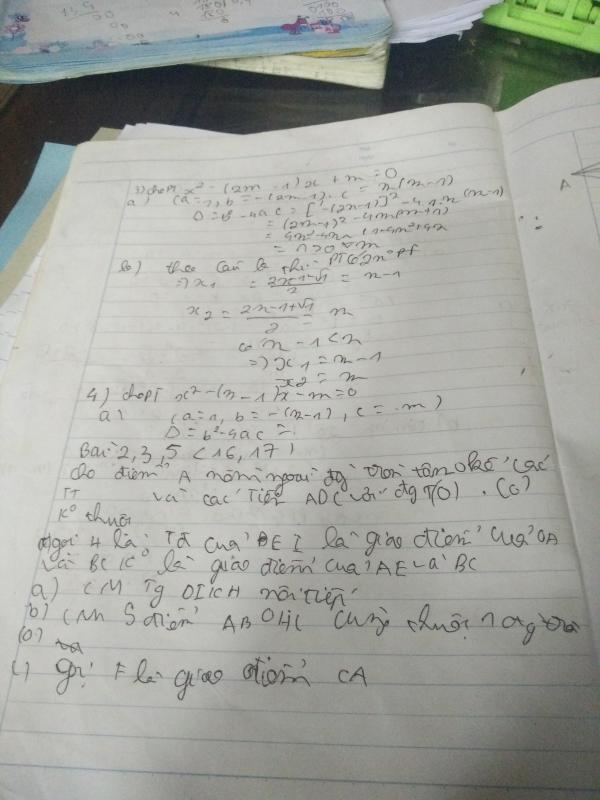 3) cho PT x² - (2m - 1)x + m = 0
a) (a = 1, b = -(2m-1), c = m(m-1)
Δ = b² - 4ac = [-(2m-1)]² - 4.1.m(m-1)
= (2m-1)² - 4m(m+1)
= 4m² - 4m + 1 - 4m² + 4m
= 1 > 0 ∀m
b) theo câu a thì PT có 2 n⁰ pf
=> x₁ = (2m-1-√1)/2 = m-1
x₂ = (2m-1+√1)/2 = m
có m - 1 < m
=> x₁ = m - 1
x₂ = m
4) cho PT x² - (m-1)x - m = 0
a) (a = 1, b = -(m-1), c = -m)
Δ = b² - 4ac =
Bài 2, 3, 5 < 16, 17)
cho điểm A nằm ngoài đg tròn tâm O kẻ các
TT và các tiến ADC với đg T(O).
K⁰ thuôi
gọi H là TĐ của DE I là giao điểm của OA
và BC K⁰ là giao điểm của AE và BC
a) CM Tg OIKH nôi tiếp
b) CM 5 điểm ABOHC cùng thuôi 1 đg tròn
(O)
c) gọi F là giao điểm CA